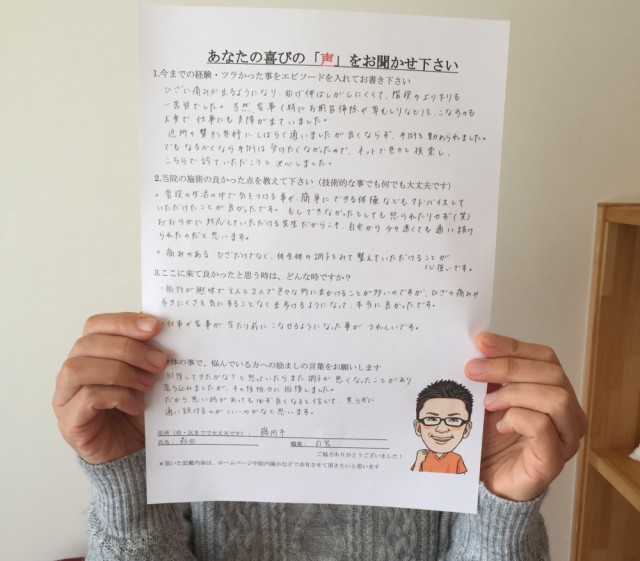 あなたの喜びの「声」をお聞かせ下さい
1.今までの経験・ツラかった事をエピソードを入れてお書き下さい
ひざに痛みが出るようになり、曲げ伸ばしがしにくくて、階段の上り下りも
一苦労でした。当然、家事(特にお風呂掃除や草むしりなど)を、こなすのも
大変で仕事にも支障が出ていました。
近所の整形外科にしばらく通いましたが良くならず、手術を勧められました。
でもなるべくなら手術は受けたくなかったので、ネットで色々と検索し、
こちらで診ていただこうと決心しました。
2.当院の施術の良かった点を教えて下さい(技術的な事でも何でも大丈夫です)
・普段の生活の中で気をつける事や、簡単にできる体操などもアドバイスして
いただけたことが良かったです。もしできなかったとしても怒られたりせず(笑)
おおらかに対応していただける先生だからこそ、自宅から少々遠くても通い続け
られたのだと思います。
・痛みのあるひざだけでなく、体全体の調子をみて整えていただけることが
心強いです。
3.ここに来て良かったと思う時は、どんな時ですか?
・旅行が趣味で主人と2人で色々な所に出かけることが多いのですが、ひざの痛みや
歩きにくさを気にすることなく出歩けるようになって、本当に良かったです。
・仕事や家事が当たり前にこなせるようになった事がうれしいです。
体の事で、悩んでいる方への励ましの言葉をお願いします
回復してきたかな?と思っていたらまた調子が悪くなったことがあり
落ち込みましたが、その後徐々に回復しました。
だから悪い時があっても必ず良くなると信じて、焦らずに
通い続けるのがいいのかなと思います。
住所(市・区まででで大丈夫です):藤岡市
氏名: 職業:
ご協力ありがとうございました!
*頂いた記載内容は、ホームページや院内掲示などで共有させて頂きたいと思います